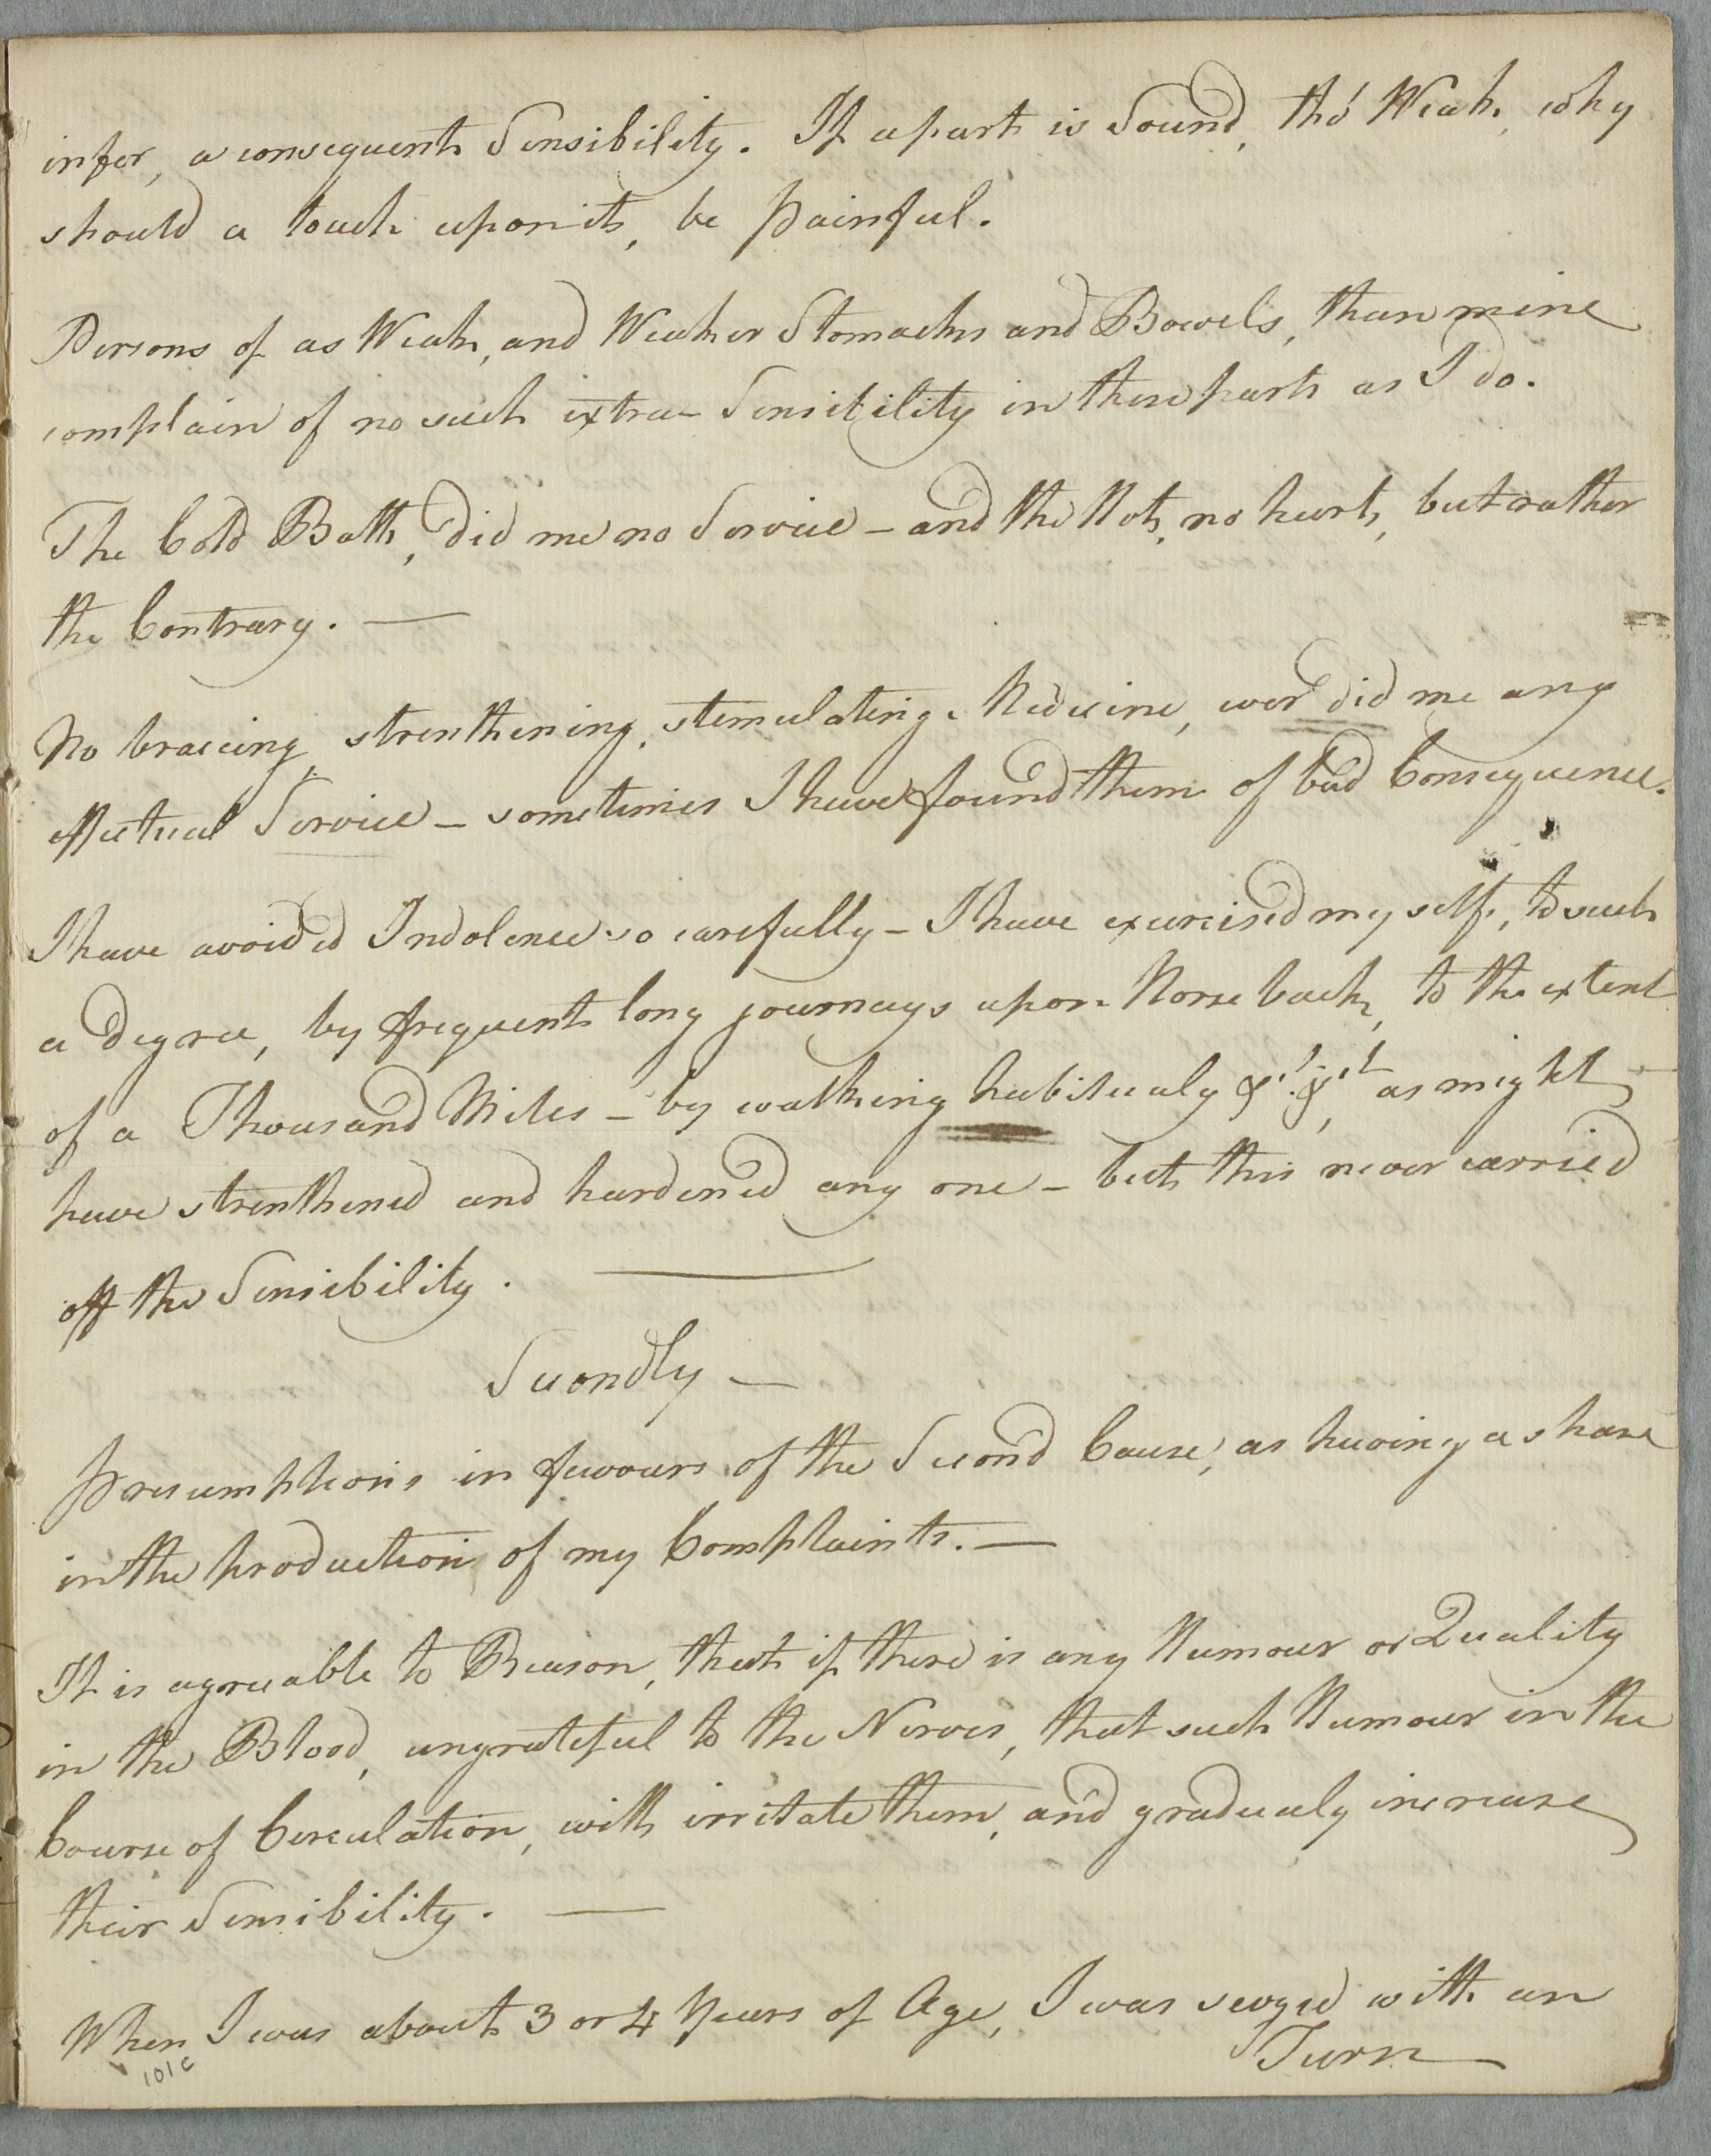 infer, a consequent Sensibility. If a part is Sound, tho' Weak, why
should a touch upon it, be painful.
Persons of as Weak, and Weaker Stomachs and Bowels, than mine
complain of no such extra-Sensibility in these parts as I do.
The Cold Bath, did me no Service - and the Hot, no hurt, but rather
the Contrary. —
No braceing, strenthening, stemulating Medicine, ever did me any
effectual Service - sometimes I have found them of bad Consequence.
I have avoided Indolence so carefully - I have exercised my self, to such
a degree, by frequent long journeys upon Horse back, to the extent
of a Thousand Miles - by walking habitualy &c. &c., as might
have strenthened and hardened any one - but this never carried
off the Sensibility. —
Secondly —
Presumptions in favour of the Second Cause, as having a share
in the production of my Complaints. —
It is agreeable to Reason, that if there is any Humour or Quality
in the Blood, ungrateful to the Nerves, that such Humour in the
Course of Circulation, will irritate them, and gradualy increase
their Sensibility. —
When I was about 3 or 4 Years of Age, I was seized with an
Turn
101c